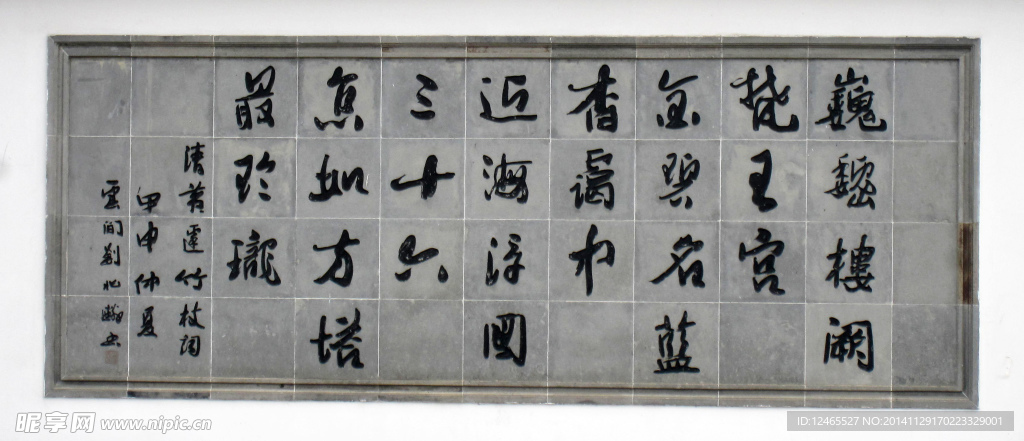 巍巍樓闕
梵王宫
金碧名藍
杳靄中
近海浮圖
三十六
怎如方塔
最玲瓏
清黄霆竹枝詞
甲申仲夏
雲间
昵享网 www.nipic.cn
ID:12465527 NO:20141129170223329001